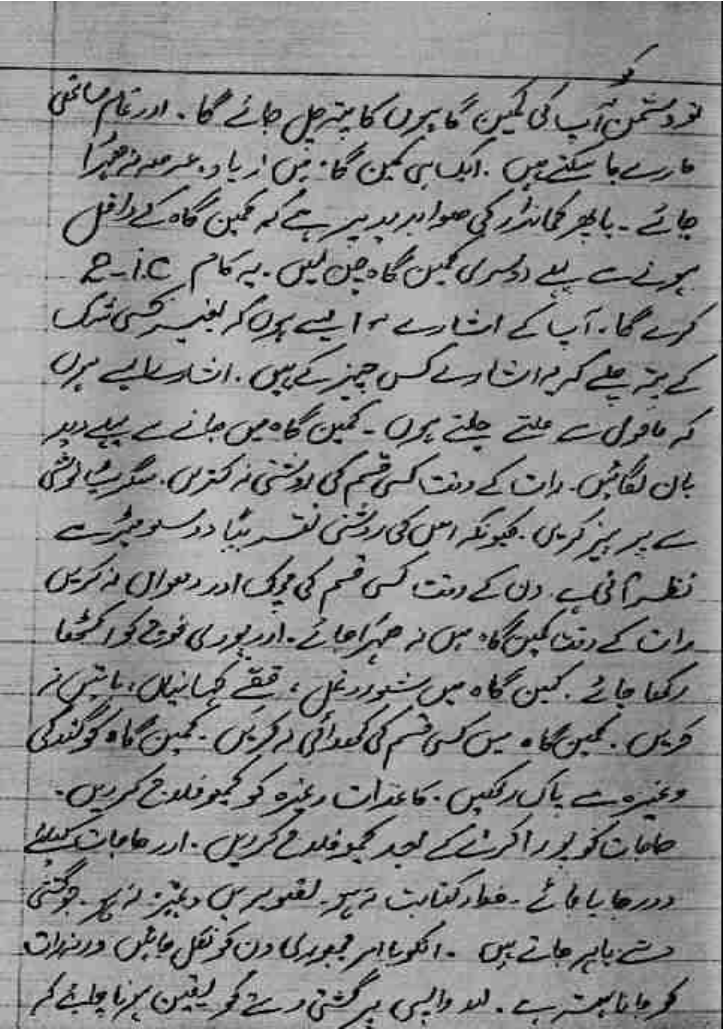 تو دشمن کو آپ کی کمین گاہوں کا پتہ چل جائے گا۔ اور تمام ساتھی
مارے جا سکتے ہیں۔ ایک ہی کمین گاہ میں زیادہ عرصہ نہ ٹھہرا
جائے۔ یا پھر کمانڈر کی صوابدید پر ہے کہ کمین گاہ کے داخل
ہونے سے پہلے دوسری کمین گاہ چن لیں۔ یہ کام 2-i.c
کرے گا۔ آپ کے اشارے نہ ایسے ہوں کہ بغیر کسی شک
کے پتہ چلے کہ یہ اشارے کس چیز کے ہیں۔ اشارے ایسے ہوں
کہ ماحول سے ملتے جلتے ہوں۔ کمین گاہ میں جانے سے پہلے دید
بان لگائیں۔ رات کے وقت کسی قسم کی روشنی نہ کریں۔ سگریٹ نوشی
سے پرہیز کریں۔ کیونکہ اس کی روشنی تقریباً دو سو میٹر سے
نظر آتی ہے۔ دن کے وقت کسی قسم کی چمک اور دھواں نہ کریں
رات کے وقت کمین گاہ میں نہ ٹھہرا جائے۔ اور پوری فوج کو اکٹھا
رکھا جائے۔ کمین گاہ میں شور و غل، قصے کہانیاں، باتیں نہ
کریں۔ کمین گاہ میں کسی قسم کی کھدائی نہ کریں۔ کمین گاہ کو گندگی
وغیرہ سے پاک رکھیں۔ کاغذات وغیرہ کو کیموفلاج کر دیں۔
حاجات کو پورا کرنے کے بعد کیموفلاج کر دیں۔ اور حاجات کیلئے
دور جایا جائے۔ خط و کتابت نہ ہو۔ تصویریں وغیرہ نہ ہو۔ جو گشتی
دستے باہر جاتے ہیں۔ انکو بامر مجبوری دن کو نکل جائیں ورنہ رات
کو جانا بہتر ہے۔ واپسی پر گشتی دستے کو یقین ہونا چاہئے کہ